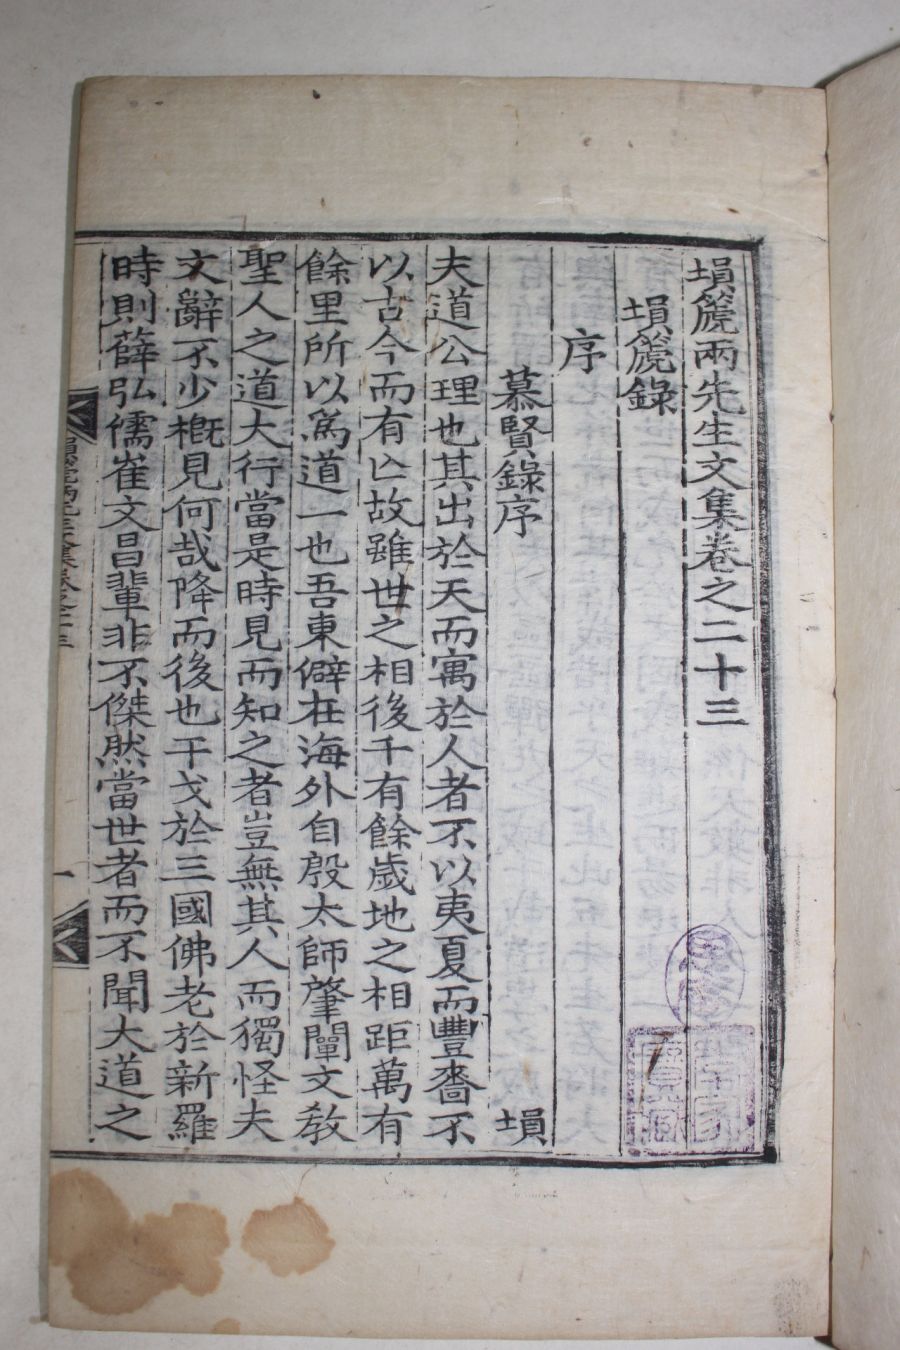 塤篪兩先生文集卷之二十三
塤篪錄
序
慕賢錄序 塤
夫道公理也其出於天而寓於人者不以夷夏而豐嗇不
以古今而有亡故雖世之相後千有餘歲地之相距萬有
餘里所以爲道一也吾東僻在海外自殷太師肇闡文敎
聖人之道大行當是時見而知之者豈無其人而獨怪夫
文辭不少槪見何哉降而後也干戈於三國佛老於新羅
時則薛弘儒崔文昌輩非不傑然當世者而不聞大道之
塤篪兩先生文集卷之二十三
一